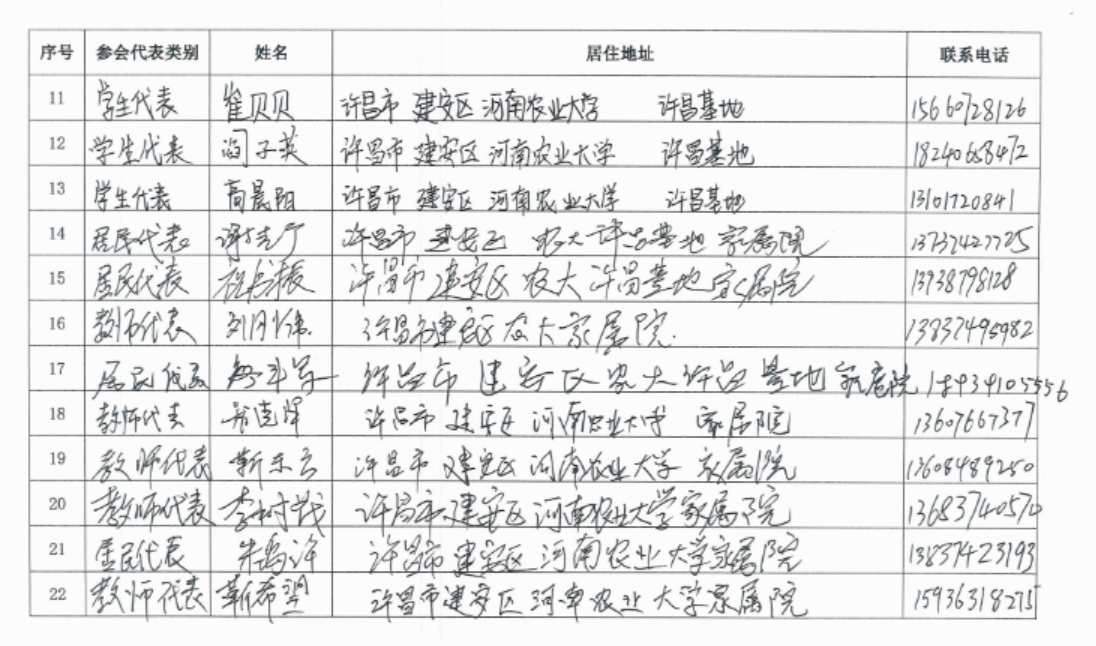 序号 参会代表类别 姓名 居住地址 联系电话
11 学生代表 崔贝贝 许昌市 建安区 河南农业大学 许昌基地 15660728126
12 学生代表 阎子英 许昌市 建安区 河南农业大学 许昌基地 18240658472
13 学生代表 高晨阳 许昌市 建安区 河南农业大学 许昌基地 13101720841
14 居民代表 许昌市 建安区 农大许昌基地 家属院 13737427725
15 居民代表 许昌市建安区 农大许昌基地家属院 13938798128
16 教师代表 许昌市建安区农大家属院. 13837495982
17 居民代表 许昌市 建安区农大许昌基地 家属院 18939105556
18 教师代表 许昌市 建安区 河南农业大学 家属院 13607667377
19 教师代表 靳东云 许昌市 建安区 河南农业大学 家属院 13608489250
20 教师代表 李树茂 许昌市建安区河南农业大学家属院 13683740570
21 居民代表 朱 许 许昌市建安区河南农业大学家属院 13837423193
22 教师代表 靳希望 许昌市建安区河南农业大学家属院 15936318275